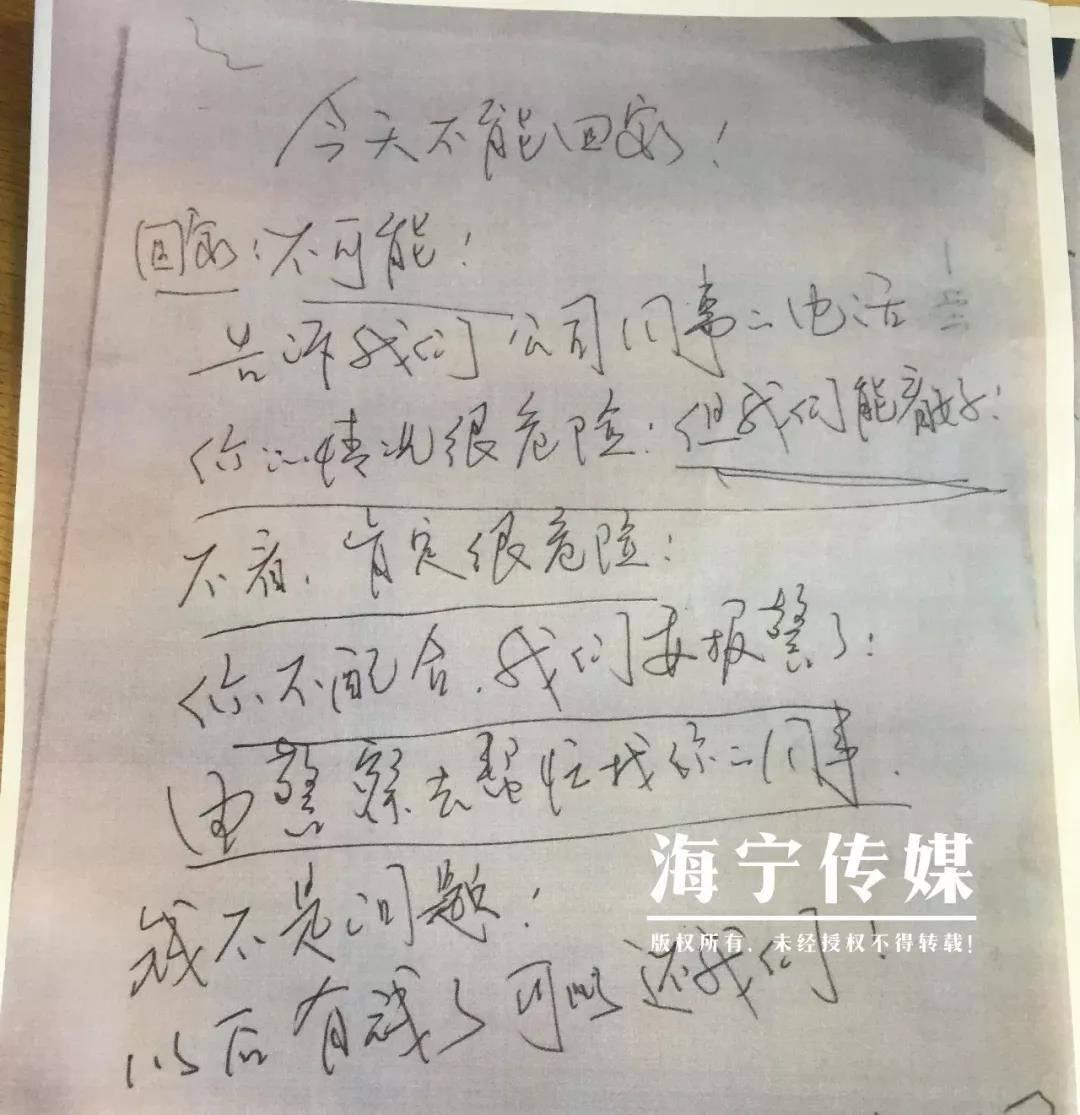 今天不能回家!
回家:不可能!
告诉我们公司同事二电话
你二情况很危险:但我们能看好:
不看,肯定很危险:
你不配合,我们要报警了:
由警察去帮忙找你二同事.
钱不是问题:
以后有钱了可以还我们!
海宁传媒
版权所有,未经授权不得转载!